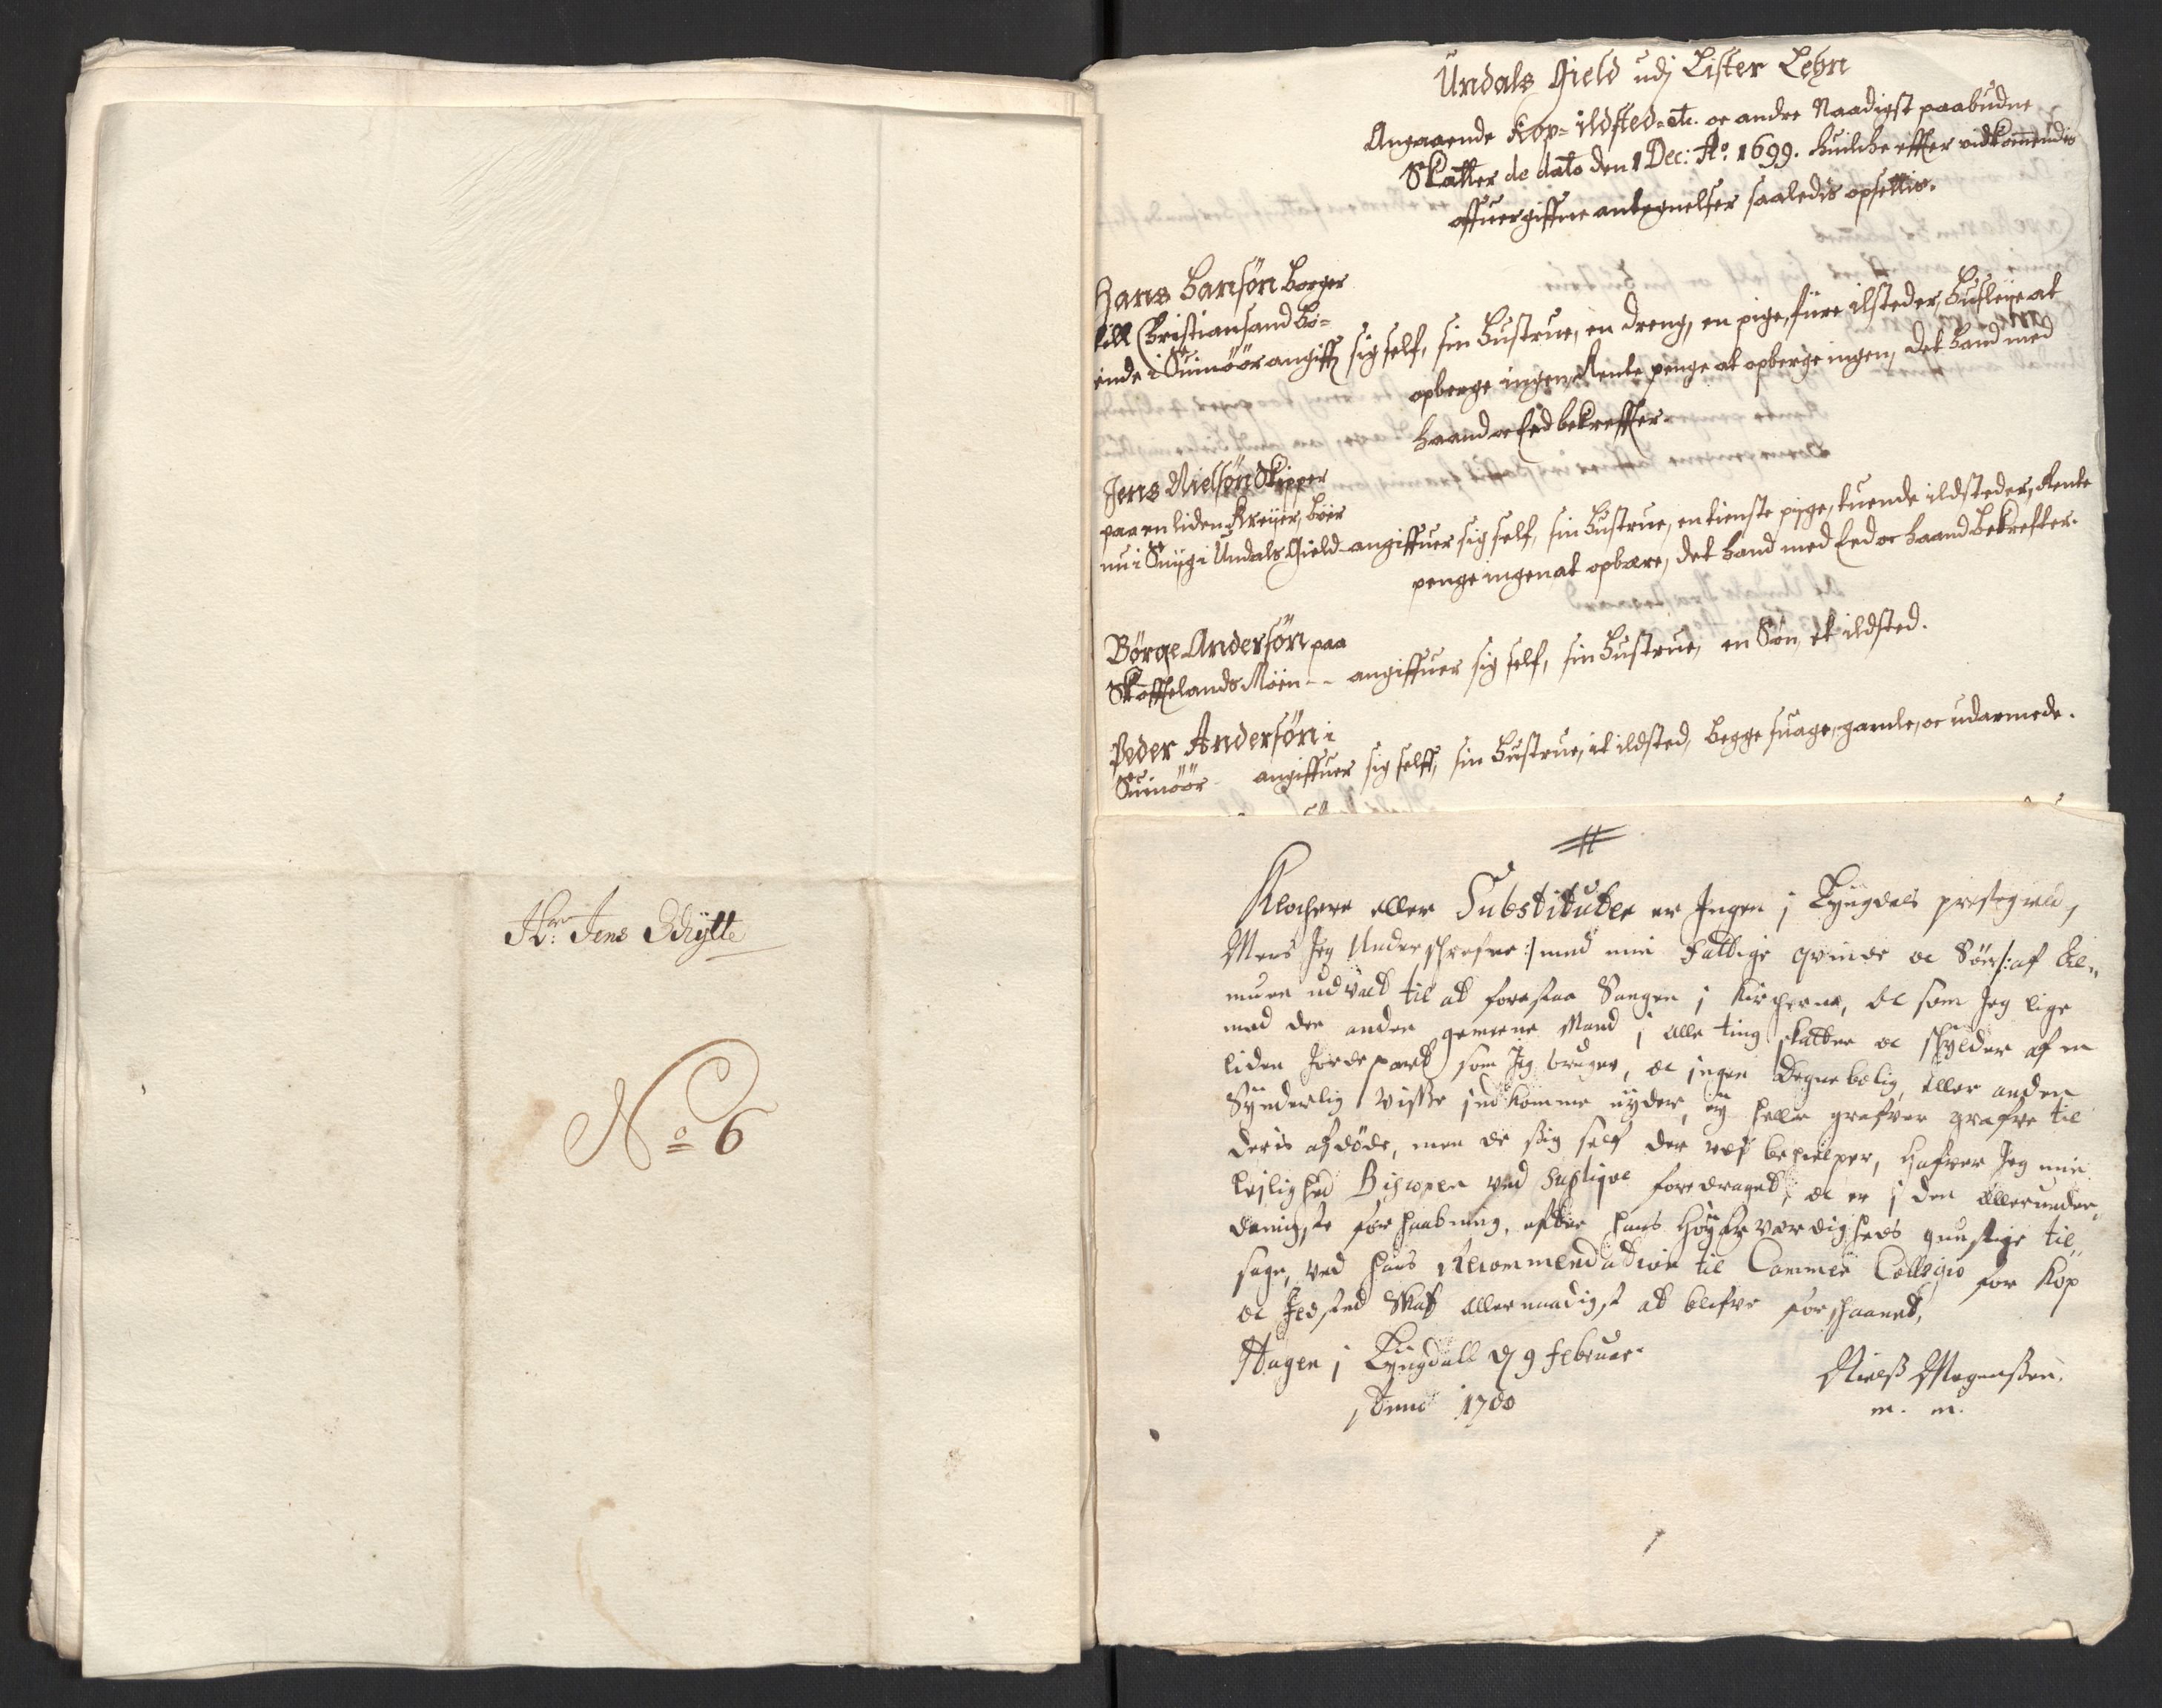 Hr: Jens Bhÿtte
No 6
Undals Gield udj Lister Lehn
Angaaende Kop= ildsted= etc. oc andre Naadigst paabudne
Skatter de dato den 1 Dec: Ao: 1699. huilche effter vedkommendis
offuergiffne antegnelser saaledis opsettis.
Hans Hansøn borger
till Christiansand bo=
ende i Suinøør angiffr sig self, sin hustrue, en dreng, en pige, fiire ilsteder, husleÿe at
opberge ingen, Rente penge at opberge ingen, det hand med
haand oc Eed bekreffter.
Jens Nielsøn Skipper
paa en liden Kreÿer, boer
nu i Snÿg i Undals Gield angiffuer sig self, sin hustrue, en tieniste pige, tuende ildsteder, Rente
penge ingen at opbære, det hand med Eed oc haand bekrefter.
Børge Andersøn paa
Skoffelands Moen - - angiffuer sig self, sin hustrue, en Søn, et ildsted.
Peder Andersøn i
Suinöör angiffuer sig selff, sin hustrue, it ildsted, begge suage, gamle, oc udarmede.
Klochere eller Substituter er Ingen j Lyngdals prestegield,
Mens Jeg Underschrefne :/ med min fattige qvinde oc Børn /: af Al„
muen udvalt til at forestaa Sangen j Kircherne, oc som Jeg lige
med den anden gemeene Mand j alle ting skatter oc skylder af en
liden Jorde part som Jeg bruger, oc ingen Degnebolig, eller anden
Synderlig visse jndkomme nyder, eÿ heller grafver grafve til
deris afdøde, men de sig self der ved behielper, hafver Jeg min
leylighed Biscopen ved suppliqve foredraget, oc er j den allerunder„
danigste forhaabning, efter hans Høÿærværdigheds gunstige til„
sagn, ved hans Recommendation til Cammer Collegio for Kop
oc Ildsted Skat allernaadigst at blifve forschaanet,
Hagen j Lyngdall d 9 februar
Anno 1700
Nielss Mogenssen.
m. m.